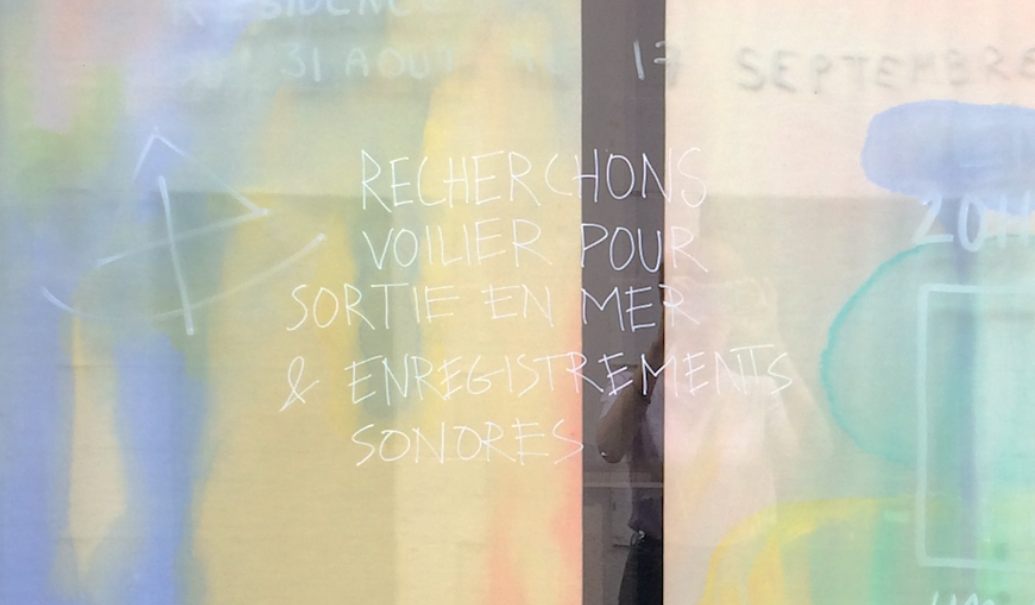 RESIDENCE
DU 31 AOUT AU 17 SEPTEMBRE
RECHERCHONS
VOILIER POUR
SORTIE EN MER
& ENREGISTREMENTS
SONORES.